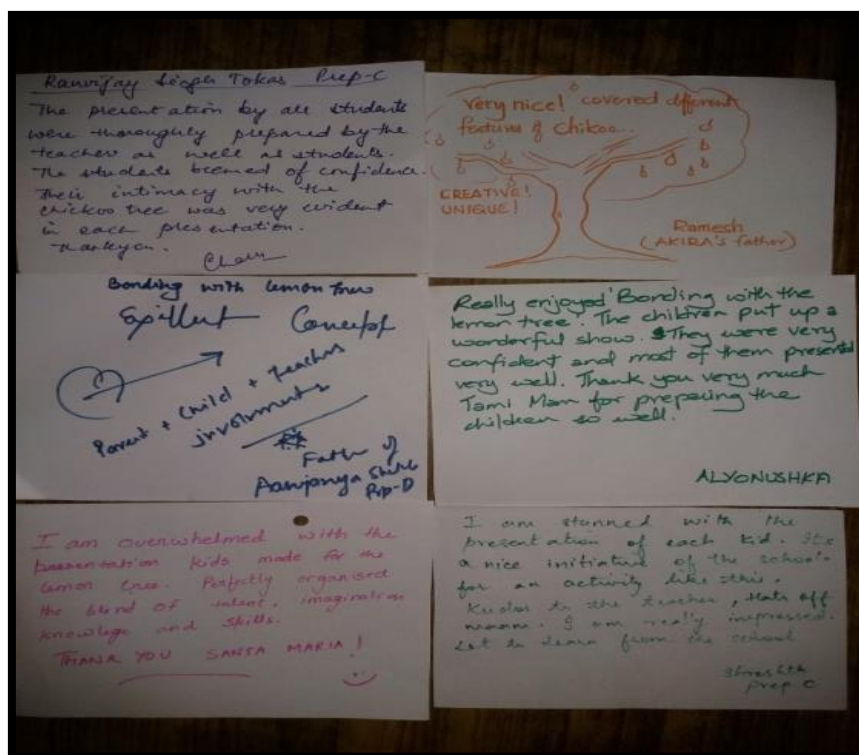 Ranvijay Singh Tokas Prep-C
The presentation by all students
were thoroughly prepared by the
teacher as well as students.
The students beemed of confidence.
Their intimacy with the
chickoo tree was very evident
in each presentation.
Thankyou.
very nice! covered different
features of Chikoo.
CREATIVE!
UNIQUE!
Ramesh
(AKIRA's father)
Bonding with lemon tree
Concept
Parent + Child + Teacher
involvments
Father of
Prep-D
Really enjoyed 'Bonding with the
lemon tree'. The children put up a
wonderful show. They were very
confident and most of them presented
very well. Thank you very much
Tami Mam for preparing the
children so well.
ALYONUSHKA
I am overwhelmed with the
presentation kids made for the
lemon tree. Perfectly organised
the blend of talent, imagination
knowlege and skills.
THANK YOU SANTA MARIA!
I am stunned with the
presentation of each kid. Its
a nice initiative of the school
for an activity like this.
Kudos to the teacher, Hats off
maam. I am really impressed.
Lot to learn from the school
Shreshth
Prep C